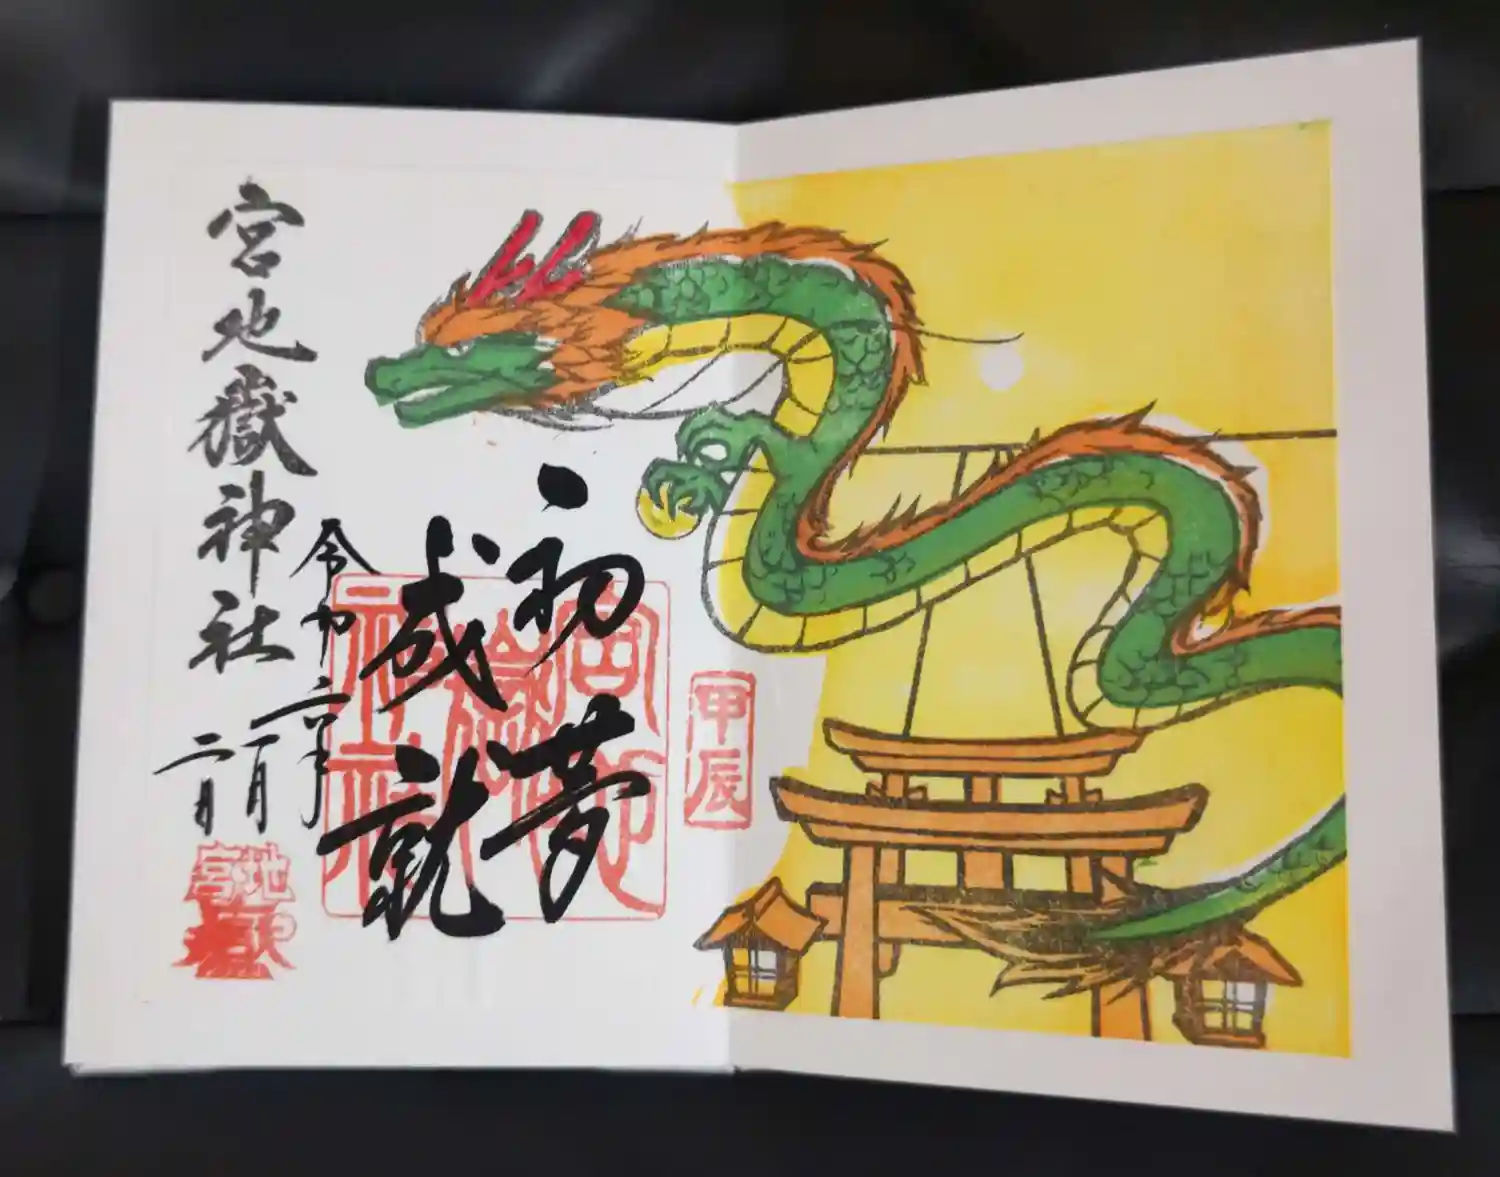 甲辰
初夢
成就
宮地
嶽
神社
令和六年
一月
二日
宮地嶽神社